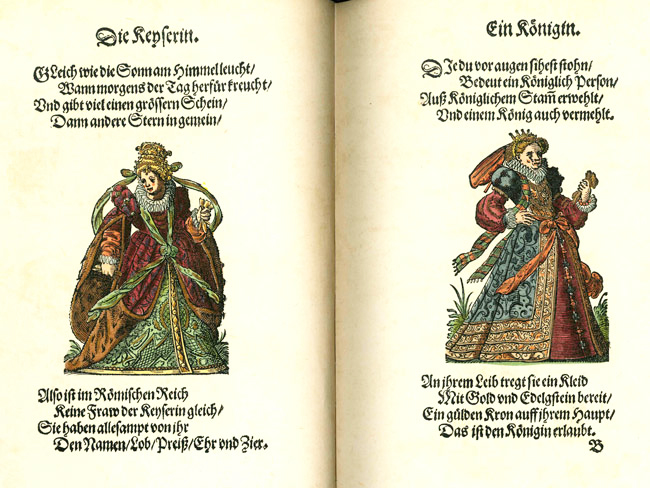 Die Keyserin.
GLeich wie die Sonn am Himmel leucht/
Wann morgens der Tag herfür kreucht/
Vnd gibt viel einen grössern Schein/
Dann andere Stern in gemein/
Also ist im Römischen Reich
Keine Fraw der Keyserin gleich/
Sie haben allesampt von jhr
Den Namen/Lob/Preiß/Ehr vnd Zier.
Ein Königin.
DJe du vor augen sihest stohn/
Bedeut ein Königlich Person/
Auß Königlichem Stam̃ erwehlt/
Vnd einem König auch vermehlt.
An jhrem Leib tregt sie ein Kleid
Mit Gold vnd Edelgstein bereit/
Ein gülden Kron auff jhrem Haupt/
Das ist den Königin erlaubt.
B